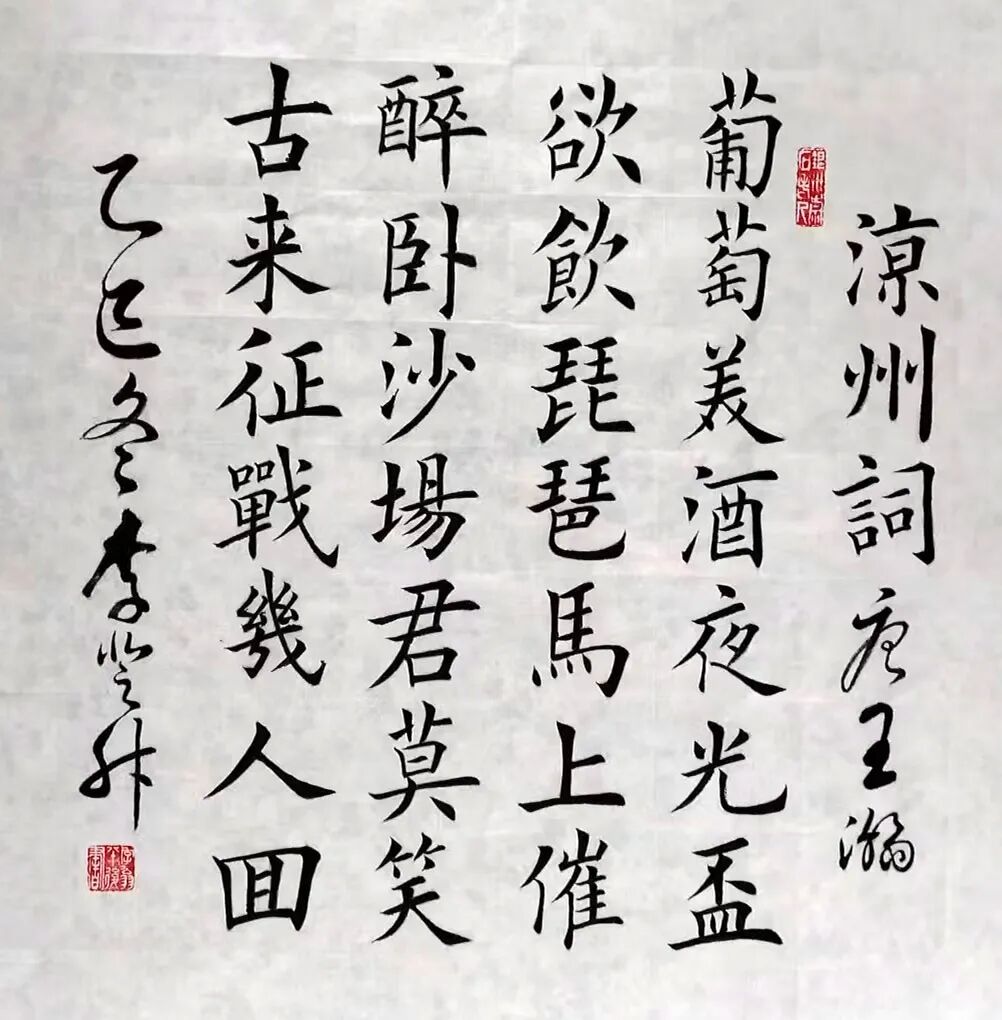 涼州詞 唐 王瀚
葡萄美酒夜光盃
欲飲琵琶馬上催
醉卧沙場君莫笑
古来征戰幾人囬
乙巳冬 李登升